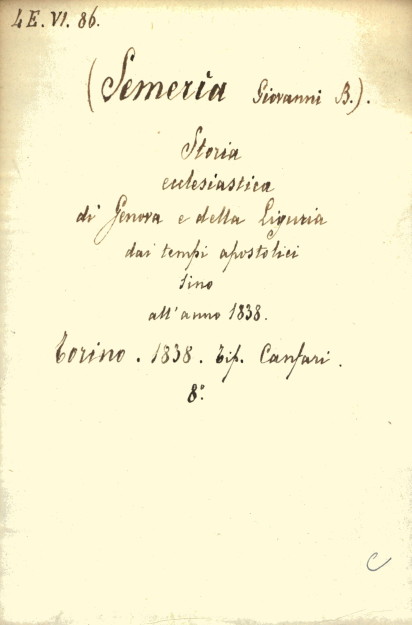 4E.VI.86.
(Semeria Giovanni B.).
Storia
eclesiastica
di Genova e della Liguria
dai tempi apostolici
sino
all'anno 1838.
Torino. 1838. Tip. Canfari.
8°
C